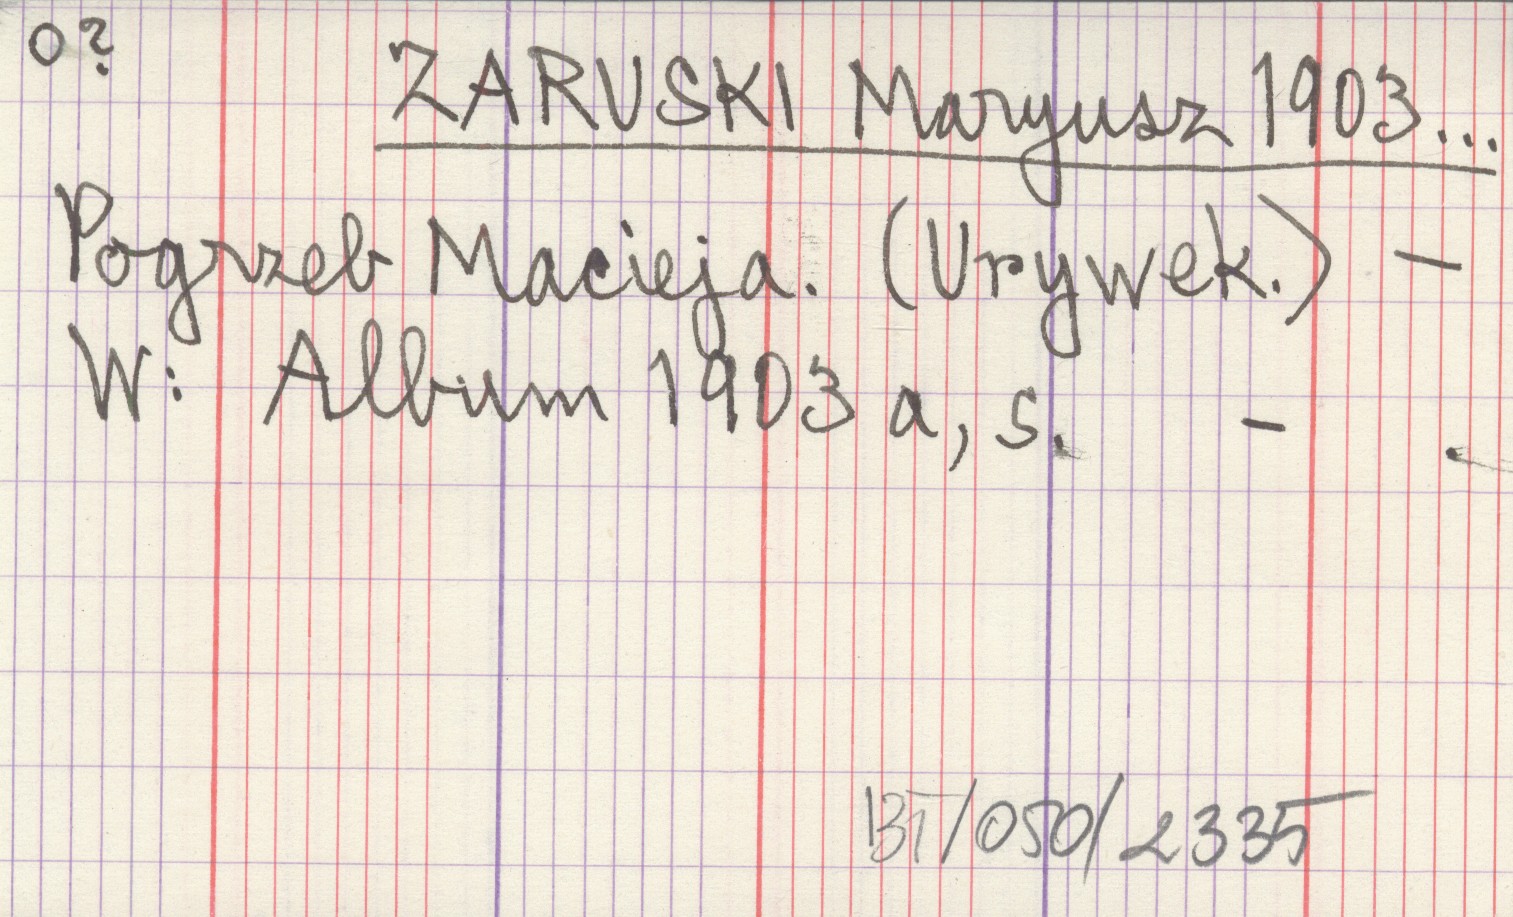 o?
ZARUSKI Maryusz 1903...
Pogrzeb Macieja. (Urywek.) –
W: Album 1903 a, s. – .
BT/050/2335